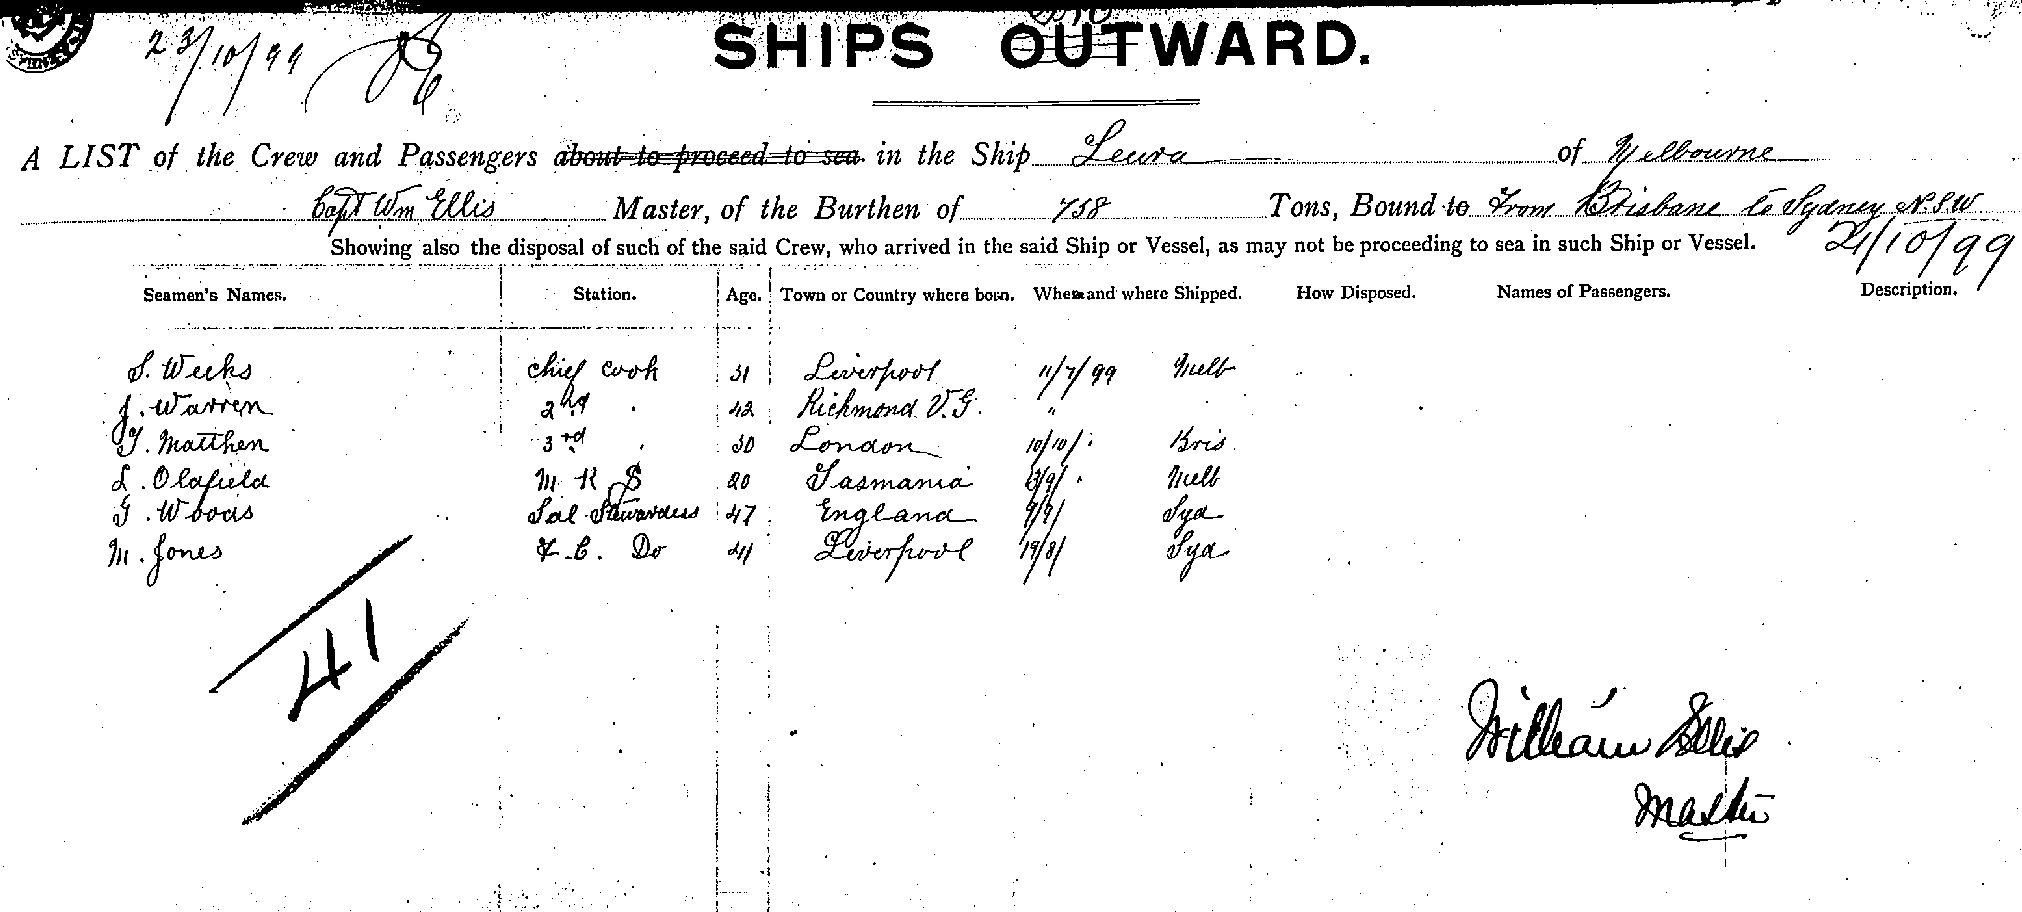 23/10/99
SHIPS OUTWARD.
A LIST of the Crew and Passengers about to proceed to sea in the Ship Leura of Melbourne
Capt Wm Ellis Master, of the Burthen of 758 Tons, Bound to From Brisbane to Sydney N.S.W
Showing also the disposal of such of the said Crew, who arrived in the said Ship or Vessel, as may not be proceeding to sea in such Ship or Vessel. 21/10/99
Seamen's Names. Station. Age. Town or Country where born. When and where Shipped. How Disposed. Names of Passengers. Description.
S. Weeks chief cook 31 Liverpool 11/7/99 Melb
J. Warren 2nd " 42 Richmond V.G. "
T. Matthen 3rd " 30 London 10/10/" Bris
L. Oldfield M K S 20 Tasmania 13/9/" Melb
G. Woods Sal Stewardess 47 England 9/9/ Syd
M. Jones F.C. Do 41 Liverpool 19/8/ Syd
41
William Ellis
Master